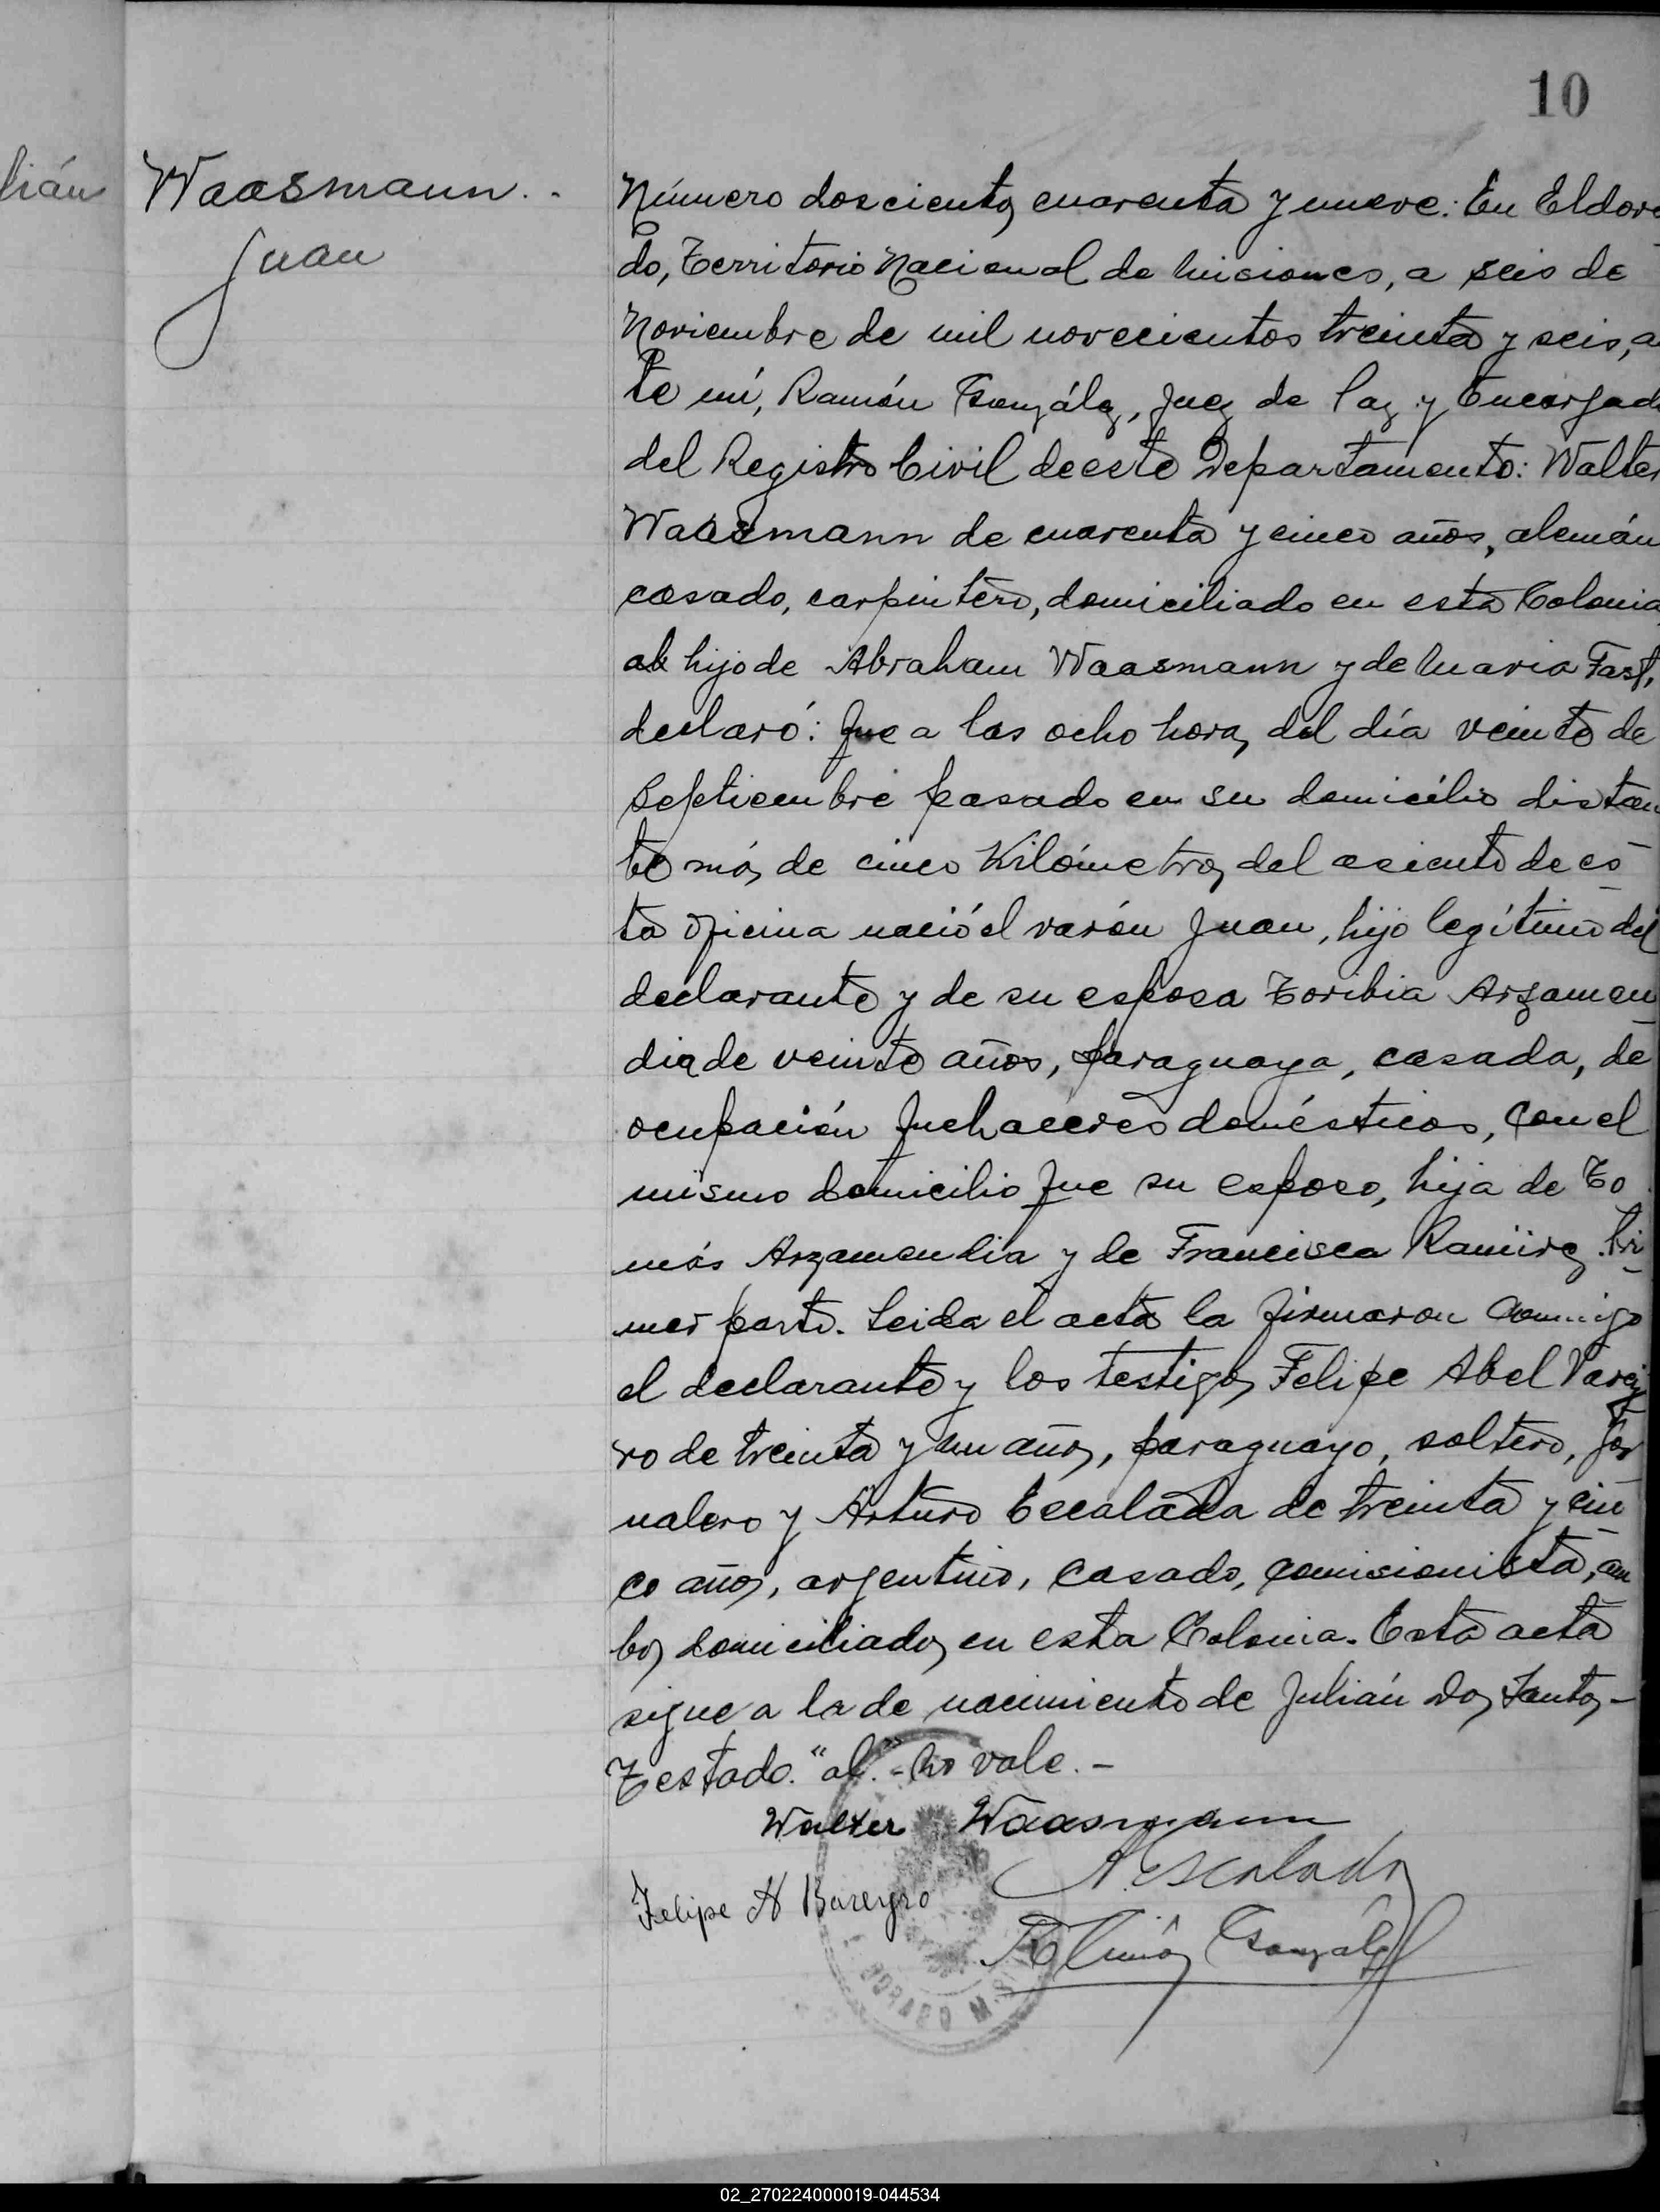 10
lián
Waasmann. -
Juan
Número doscientos cuarenta y nueve: En Eldora
do, Territorio Nacional de Misiones, a seis de
Noviembre de mil novecientos treinta y seis, an
te mí, Ramón González, Juez de Paz y Encargado
del Registro Civil de este Departamento: Walter
Waasmann de cuarenta y cinco años, alemán
casado, carpintero, domiciliado en esta Colonia,
al hijo de Abraham Waasmann y de Maria Fast,
declaró: Que a las ocho horas del día veinte de
Septiembre pasado en su domicilio distan
te más de cinco Kilómetros del asiento de es
ta oficina nació el varón Juan, hijo legítimo del
declarante y de su esposa Toribia Arzamen
dia de veinte años, paraguaya, casada, de
ocupación quehaceres domésticos, con el
mismo domicilio que su esposo, hija de To
más Arzamendia y de Francisca Ramírez. Pri
mer parto. Leida el acta la firmaron conmigo
el declarante y los testigos Felipe Abel Varey
ro de treinta y un años, paraguayo, soltero, jor
nalero y Arturo Escalada de treinta y cin
co años, argentino, casado, comisionista, am
bos domiciliados en esta Colonia. Esta acta
sigue a la de nacimiento de Julián Dos Santos -
Testado. "al" - No vale. -
Walter Waasmann
A. Escalada
Felipe A Bareyro
Ramón González
DORADO MIS
02_270224000019-044534